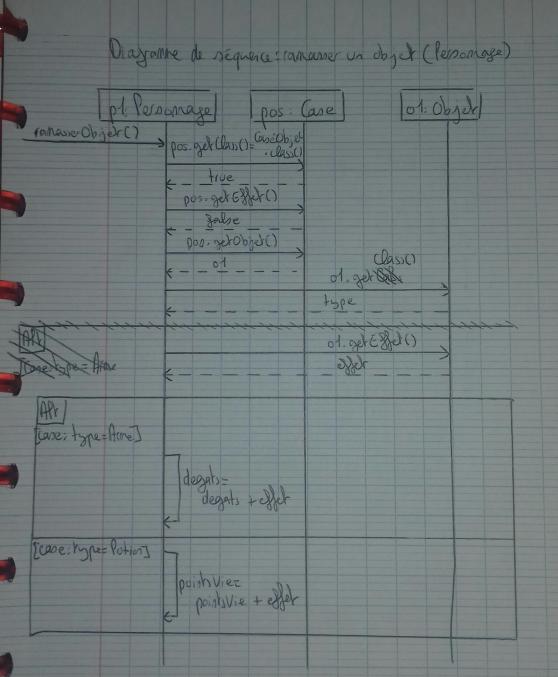 Diagramme de séquence: ramasser un objet (Personnage)
p1: Personnage
pos: Case
o1: Objet
ramasserObjet()
pos.getClass()= CaseObjet
.class()
true
pos.getEffet()
false
pos.getObjet()
o1
Class()
o1.get
type
Alt
o1.getEffet()
[case: type= Arme
effet
Alt
[case: type=Arme]
degats=
degats + effet
[case: type= Potion]
pointsVie=
pointsVie + effet